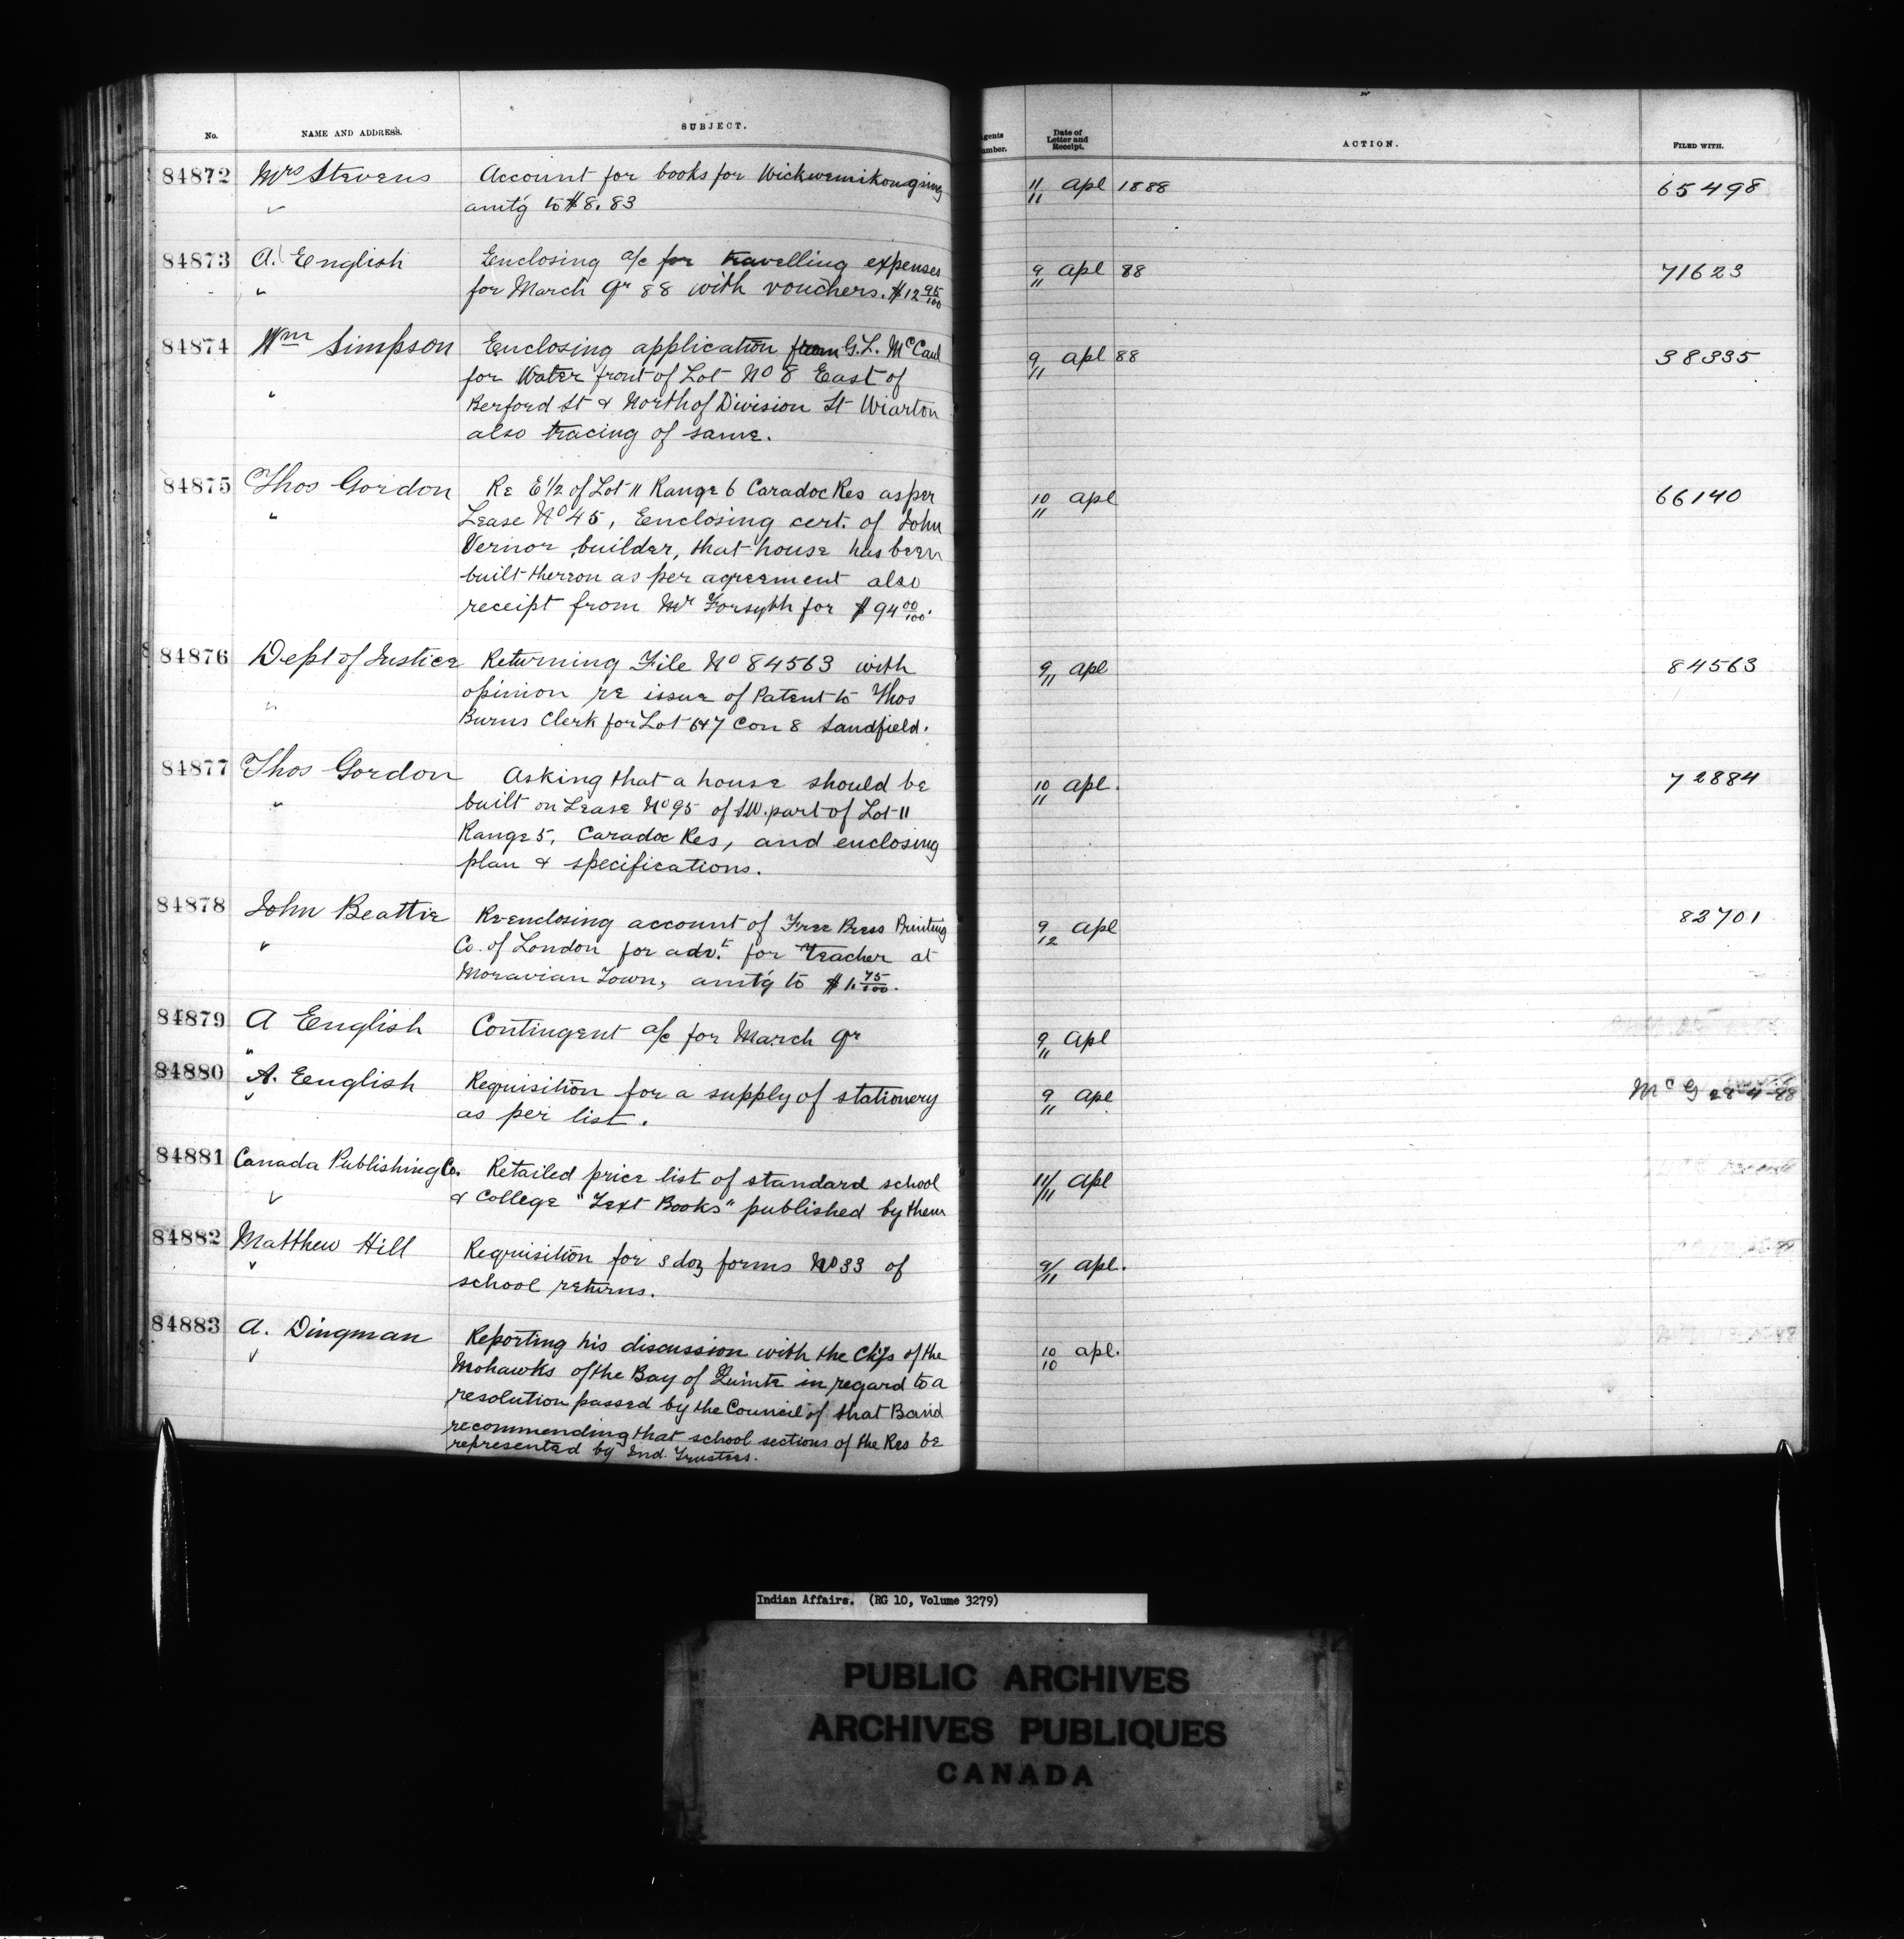 No. NAME AND ADDRESS. SUBJECT. Agents Number. Date of Letter and Receipt. ACTION. FILED WITH.
84872 Mrs Stevens Account for books for Wickwemikongsing 11/11 Apl 1888 65498
" amt'g to $8.83
84873 A. English Enclosing a/c for travelling expenses 9/11 Apl 88 71623
" for March qr 88 with vouchers. $12 95/100
84874 Wm Simpson Enclosing application from G.L. McCaul 9/11 Apl 88 38335
for Water front of Lot No 8 East of
" Berford St & North of Division St Wiarton
also tracing of same.
84875 Thos Gordon Re E 1/2 of Lot 11 Range 6 Caradoc Res as per 10/11 Apl 66140
" Lease No 45, Enclosing cert. of John
Vernor, builder, that house has been
built thereon as per agreement also
receipt from Mr Forsyth for $94 00/100.
84876 Dept of Justice Returning File No 84563 with 9/11 Apl 84563
" opinion re issue of Patent to Thos
Burns Clerk for Lot 6&7 Con 8 Sandfield.
84877 Thos Gordon Asking that a house should be 10/11 Apl. 72884
" built on Lease No 95 of S.W. part of Lot 11
Range 5, Caradoc Res, and enclosing
plan & specifications.
84878 John Beattie Re-enclosing account of Free Press Printing 9/12 Apl 83701
" Co. of London for advt. for Teacher at
Moravian Town, amt'g to $1.75/100.
84879 A English Contingent a/c for March qr 9/11 Apl
"
84880 A. English Requisition for a supply of stationery 9/11 Apl McG 28-4-88
" as per list.
84881 Canada Publishing Co. Retailed price list of standard school 11/11 Apl
" & College "Text Books" published by them
84882 Matthew Hill Requisition for 3 doz forms No 33 of 9/11 Apl.
" school returns.
84883 A. Dingman Reporting his discussion with the Chfs of the 10/10 Apl.
" Mohawks of the Bay of Quinte in regard to a
resolution passed by the Council of that Band
recommending that school sections of the Res be
represented by Ind. Trustees.
Indian Affairs. (RG 10, Volume 3279)
PUBLIC ARCHIVES
ARCHIVES PUBLIQUES
CANADA